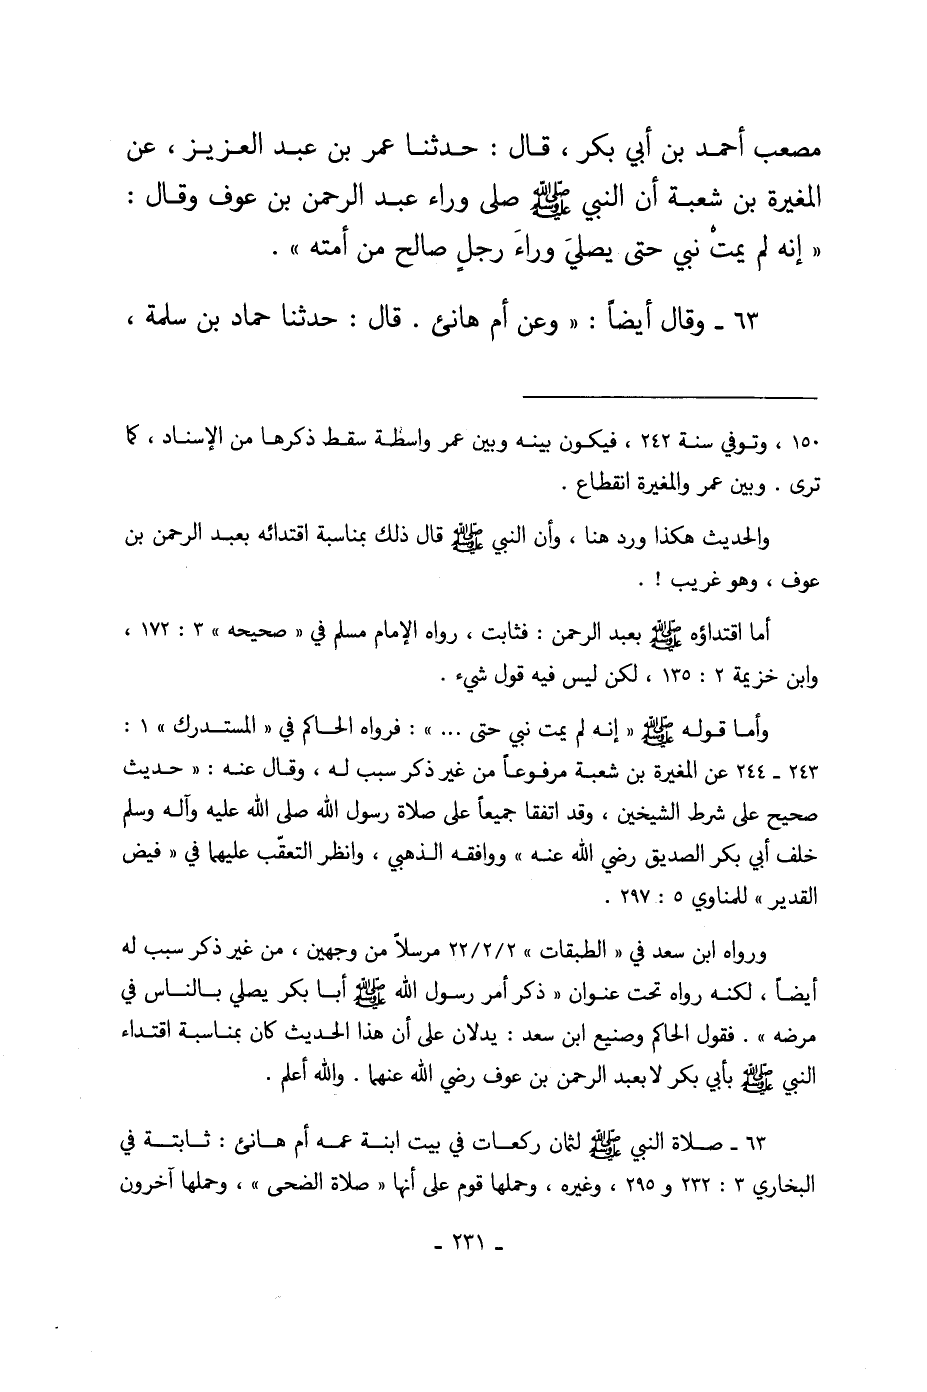 مصعب أحمد بن أبي بكر ، قال : حدثنا عمر بن عبد العزيز ، عن
المغيرة بن شعبة أن النبي ﷺ صلى وراء عبد الرحمن بن عوف وقال :
« إنه لم يمتْ نبي حتى يصليَ وراءَ رجلٍ صالح من أمته » .
٦٣ ـ وقال أيضاً : « وعن أم هانئ . قال : حدثنا حماد بن سلمة ،
١٥٠ ، وتوفي سنة ٢٤٢ ، فيكون بينه وبين عمر واسطة سقط ذكرها من الإسناد ، كما
ترى . وبين عمر والمغيرة انقطاع .
والحديث هكذا ورد هنا ، وأن النبي ﷺ قال ذلك بمناسبة اقتدائه بعبد الرحمن بن
عوف ، وهو غريب ! .
أما اقتداؤه ﷺ بعبد الرحمن : فثابت ، رواه الإمام مسلم في « صحيحه » ٣ : ١٧٢ ،
وابن خزيمة ٢ : ١٣٥ ، لكن ليس فيه قول شيء .
وأما قوله ﷺ « إنه لم يمت نبي حتى ... » : فرواه الحاكم في « المستدرك » ١ :
٢٤٣ ـ ٢٤٤ عن المغيرة بن شعبة مرفوعاً من غير ذكر سبب له ، وقال عنه : « حديث
صحيح على شرط الشيخين ، وقد اتفقا جميعاً على صلاة رسول الله صلى الله عليه وآله وسلم
خلف أبي بكر الصديق رضي الله عنه » ووافقه الذهبي ، وانظر التعقّب عليهما في « فيض
القدير » للمناوي ٥ : ٢٩٧ .
ورواه ابن سعد في « الطبقات » ٢٢/٢/٢ مرسلاً من وجهين ، من غير ذكر سبب له
أيضاً ، لكنه رواه تحت عنوان « ذكر أمر رسول الله ﷺ أبا بكر يصلي بالناس في
مرضه » . فقول الحاكم وصنيع ابن سعد : يدلان على أن هذا الحديث كان بمناسبة اقتداء
النبي ﷺ بأبي بكر لا بعبد الرحمن بن عوف رضي الله عنهما . والله أعلم .
٦٣ ـ صلاة النبي ﷺ لثمان ركعات في بيت ابنة عمه أم هانئ : ثابتة في
البخاري ٣ : ٢٣٢ و ٢٩٥ ، وغيره ، وحملها قوم على أنها « صلاة الضحى » ، وحملها آخرون
ـ ٢٣١ ـ